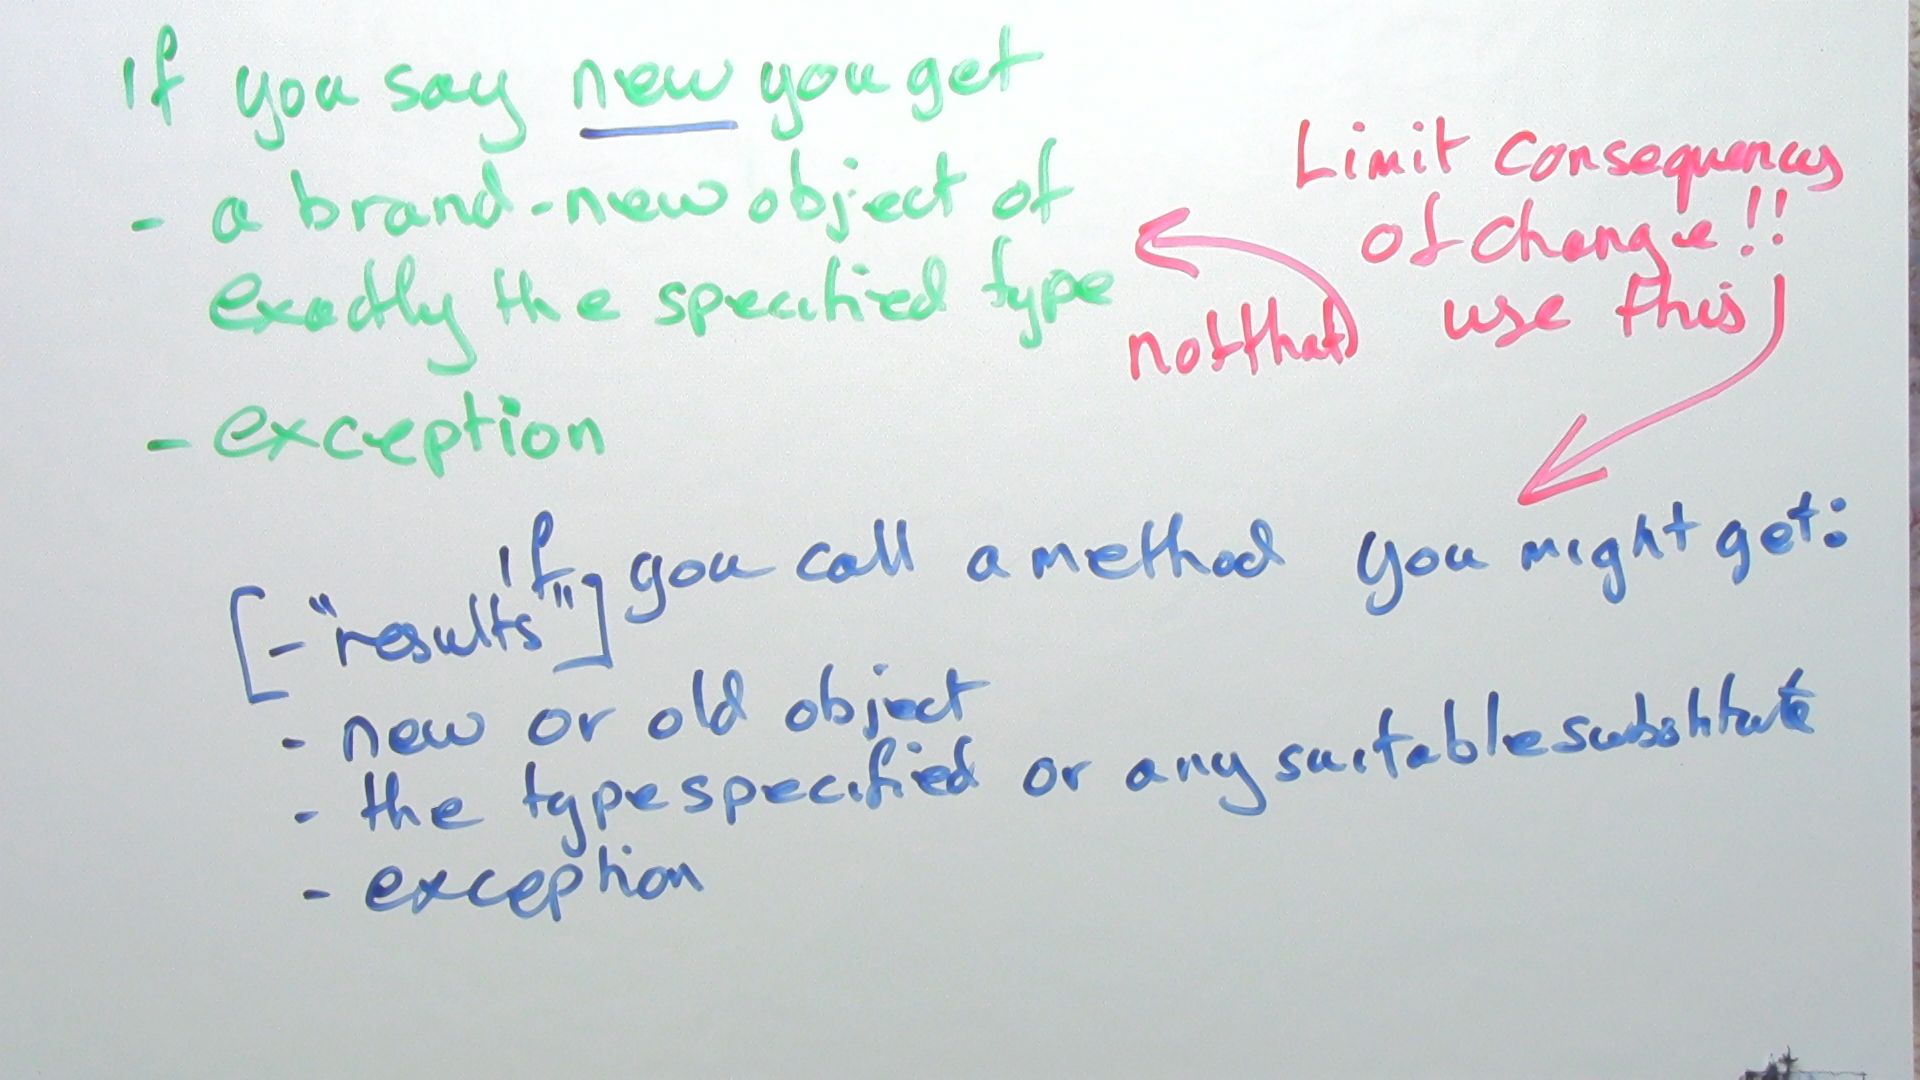 If you say new you get
- a brand-new object of
exactly the specified type
- exception
Limit consequences
of change!!
use this
not that
If you call a method you might get:
[- "results"]
- new or old object
- the type specified or any suitable substitute
- exception